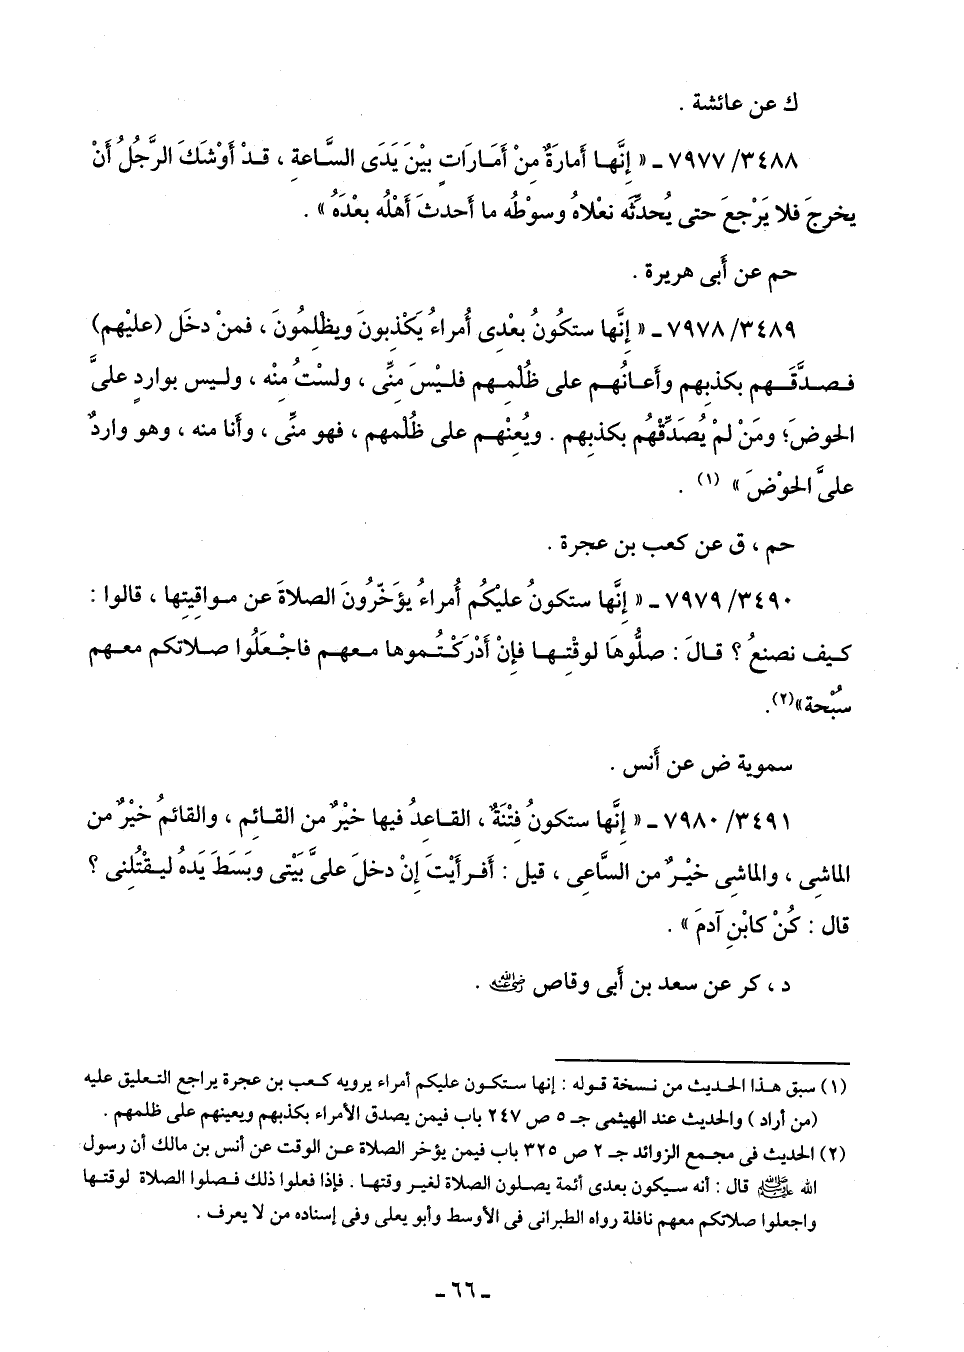 ك عن عائشة .
٧٩٧٧/٣٤٨٨ ـ « إنَّها أمارَةٌ مِنْ أمَارَاتٍ بيْنَ يَدَى السَّاعةِ ، قدْ أوْشكَ الرَّجُلُ أنْ
يخرجَ فلا يَرْجعَ حتى يُحدثِّه نعْلاهُ وسوْطُه ما أحدثَ أهْلُه بعْدَهُ » .
حم عن أبى هريرة .
٧٩٧٨/٣٤٨٩ ـ « إنَّها ستكونُ بعْدِى أُمراءُ يَكْذِبونَ ويظْلِمُونَ ، فمنْ دخَل (عليْهم)
فـصدَّقَـهم بكذبِهم وأعـانُهـم على ظُلْمِـهم فليْسَ مِنِّى ، ولسْتُ مِنْه ، وليـس بواردٍ علىَّ
الحوضَ؛ ومَنْ لمْ يُصَدِّقْهُم بكذبهم . ويُعِنْهـم على ظُلْمهم ، فهو منِّى ، وأنا منه ، وهو واردٌ
علىَّ الحوْضَ » (١) .
حم ، ق عن كعب بن عجرة .
٧٩٧٩/٣٤٩٠ ـ « إنَّها ستكونُ عليْكُم أُمراءُ يؤَخِّرُونَ الصلاةَ عن مـواقيتِها ، قالوا :
كـيف نصنعُ ؟ قـالَ : صلُّوهَا لوقْتِـهـا فإنْ أدْرَكْـتُموها معـهم فاجْعَلُوا صـلاتكم معـهم
سُبْحة»(٢).
سموية ض عن أنس .
٧٩٨٠/٣٤٩١ ـ « إنَّها ستكونُ فِتْنَةٌ ، القـاعدُ فيها خيْرٌ من القـائم ، والقائمُ خيْرٌ من
الماشِى ، والماشِى خيْـرٌ من السَّاعى ، قيل : أفـرأيْتَ إنْ دخلَ علىَّ بَيْتى وبسَطَ يَدهُ ليـقْتُلنى ؟
قال : كُنْ كابْنِ آدمَ » .
د ، كر عن سعد بن أبى وقاص رضي الله عنه .
(١) سبق هـذا الحديث من نسخة قوله : إنها ستكون عليكم أمراء يرويه كعب بن عجرة يراجع التعليق عليه
(من أراد ) والحديث عند الهيثمى جـ ٥ ص ٢٤٧ باب فيمن يصدق الأمراء بكذبهم ويعينهم على ظلمهم .
(٢) الحديث فى مجمع الزوائد جـ ٢ ص ٣٢٥ باب فيمن يؤخر الصلاة عـن الوقت عن أنس بن مالك أن رسول
الله ﷺ قال : أنه سيكون بعدى أئمة يصلون الصلاة لغير وقتها . فإذا فعلوا ذلك فـصلوا الصلاة لوقتـها
واجعلوا صلاتكم معهم نافلة رواه الطبرانى فى الأوسط وأبو يعلى وفى إسناده من لا يعرف .
ـ ٦٦ ـ